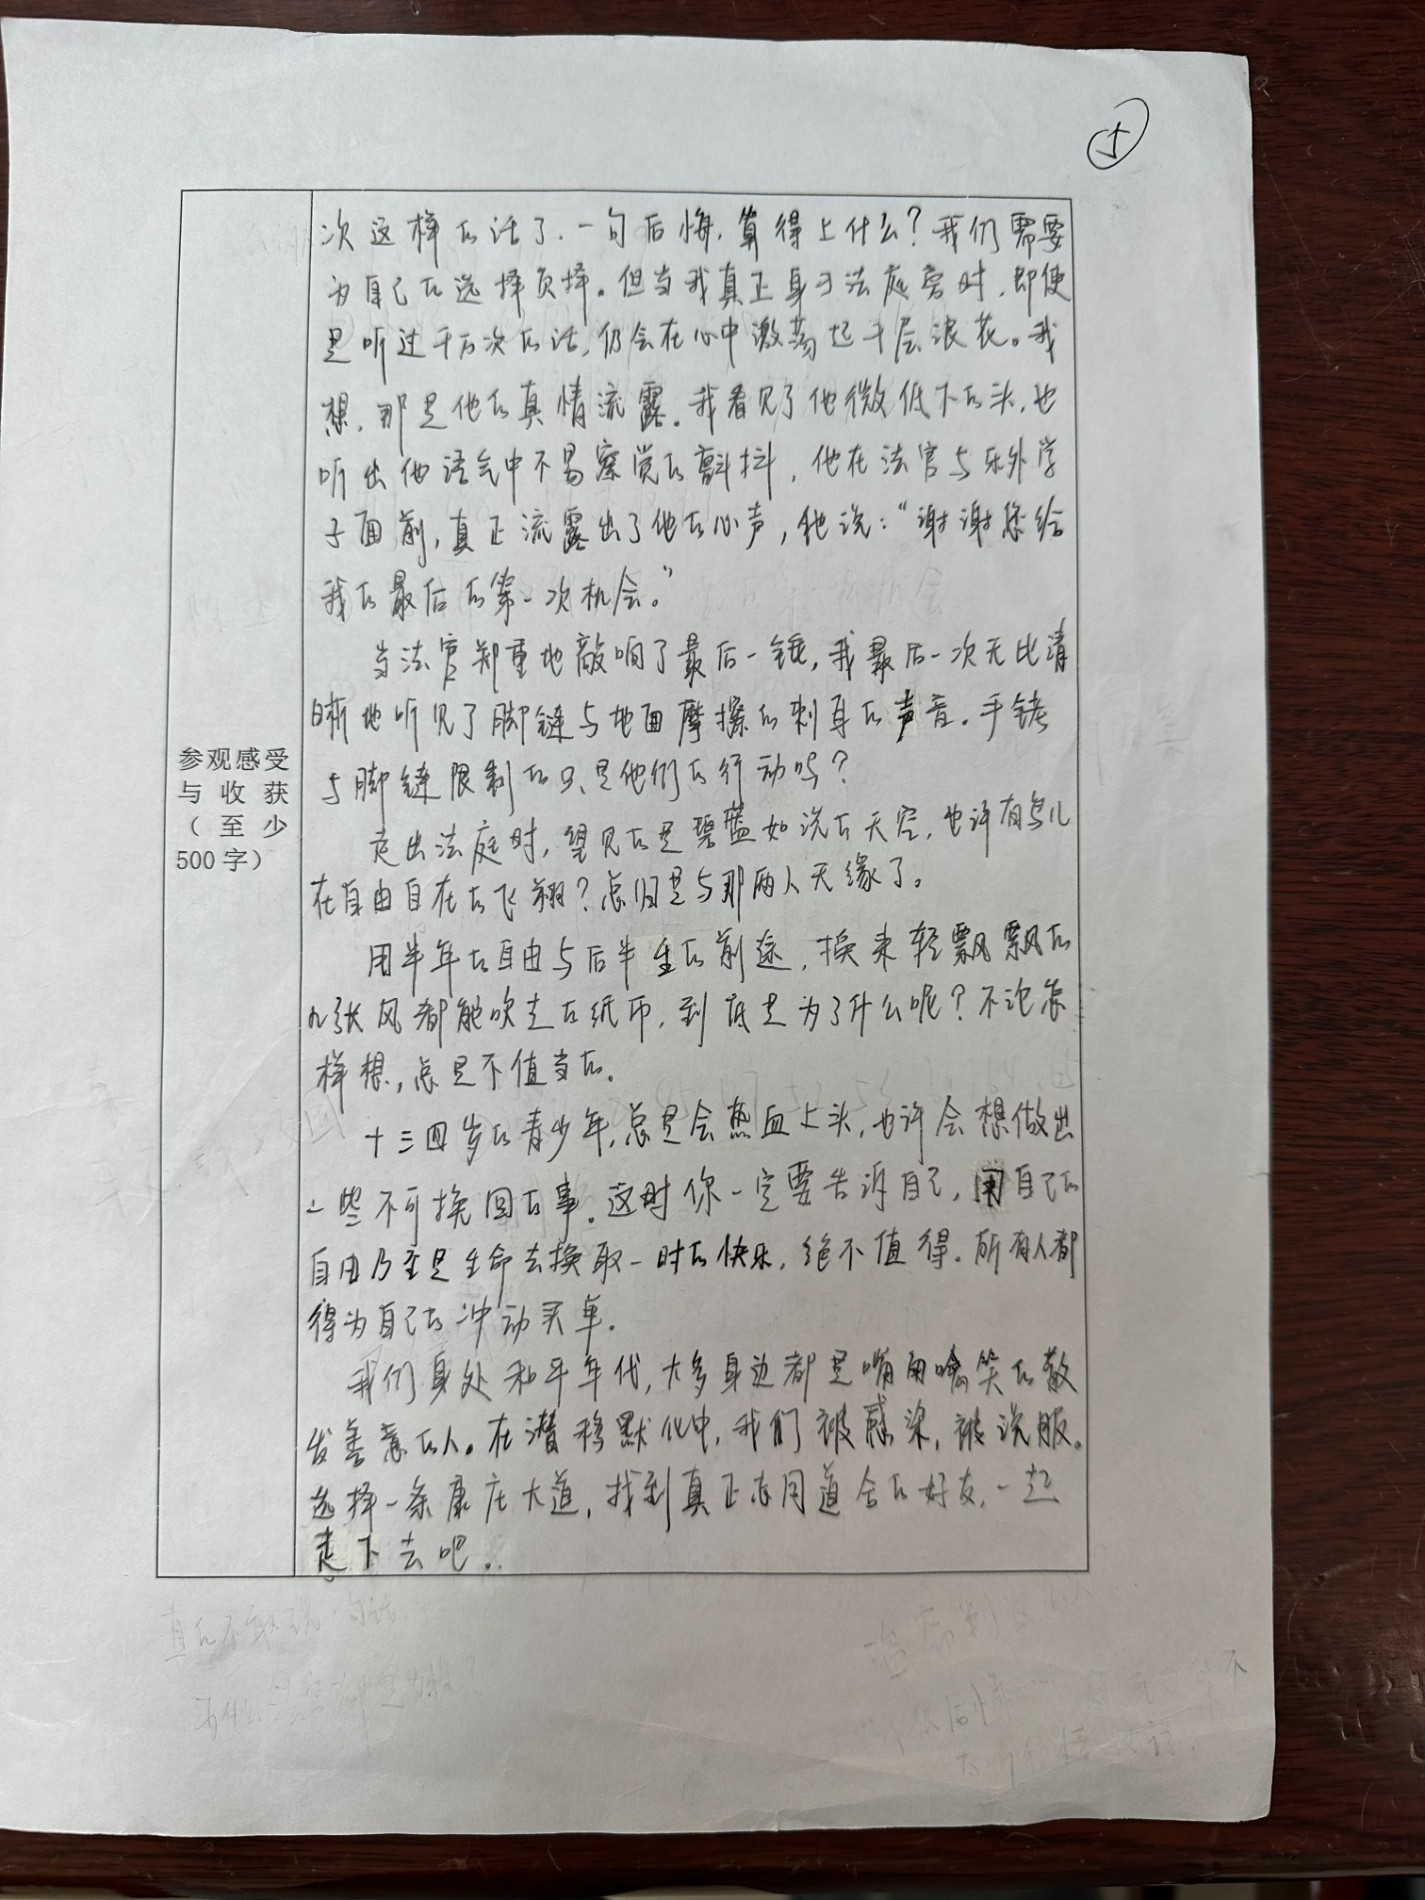 5
参观感受
与收获
（至少
500字）
次这样的话了．一句后悔，算得上什么？我们需要
为自己的选择负择。但当我真正身于法庭旁时，即使
是听过千万次的话，仍会在心中激荡起千层浪花。我
想，那是他的真情流露．我看见了他微低下的头，也
听出他语气中不易察觉的颤抖，他在法官与乐外学
子面前，真正流露出了他的心声，他说：“谢谢您给
我的最后的第一次机会。”
当法官郑重地敲响了最后一锤，我最后一次无比清
晰地听见了脚链与地面摩擦的刺耳的声音．手铐
与脚链限制的只是他们的行动吗？
走出法庭时，望见的是碧蓝如洗的天空，也许有鸟儿
在自由自在的飞翔？总归是与那两人无缘了。
用半年的自由与后半生的前途，换来轻飘飘的
几张风都能吹走的纸币，到底是为了什么呢？不论怎
样想，总是不值当的．
十三四岁的青少年，总是会热血上头，也许会想做出
一些不可挽回的事．这时你一定要告诉自己，用自己的
自由乃至是生命去换取一时的快乐，绝不值得．所有人都
得为自己的冲动买单．
我们身处和平年代，大多身边都是嘴角噙笑的散
发善意的人。在潜移默化中，我们被感染，被说服。
选择一条康庄大道，找到真正志同道合的好友，一起
走下去吧．